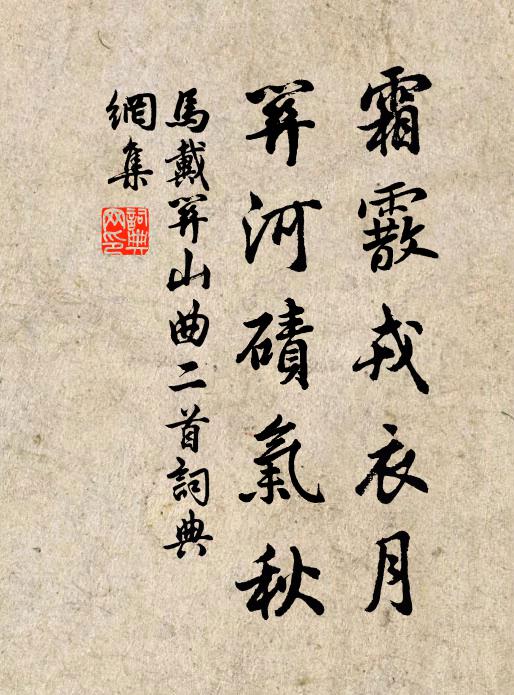 霜霰戎衣月
關河磧氣秋
馬戴關山曲二首詞典
網集
詞典
网印